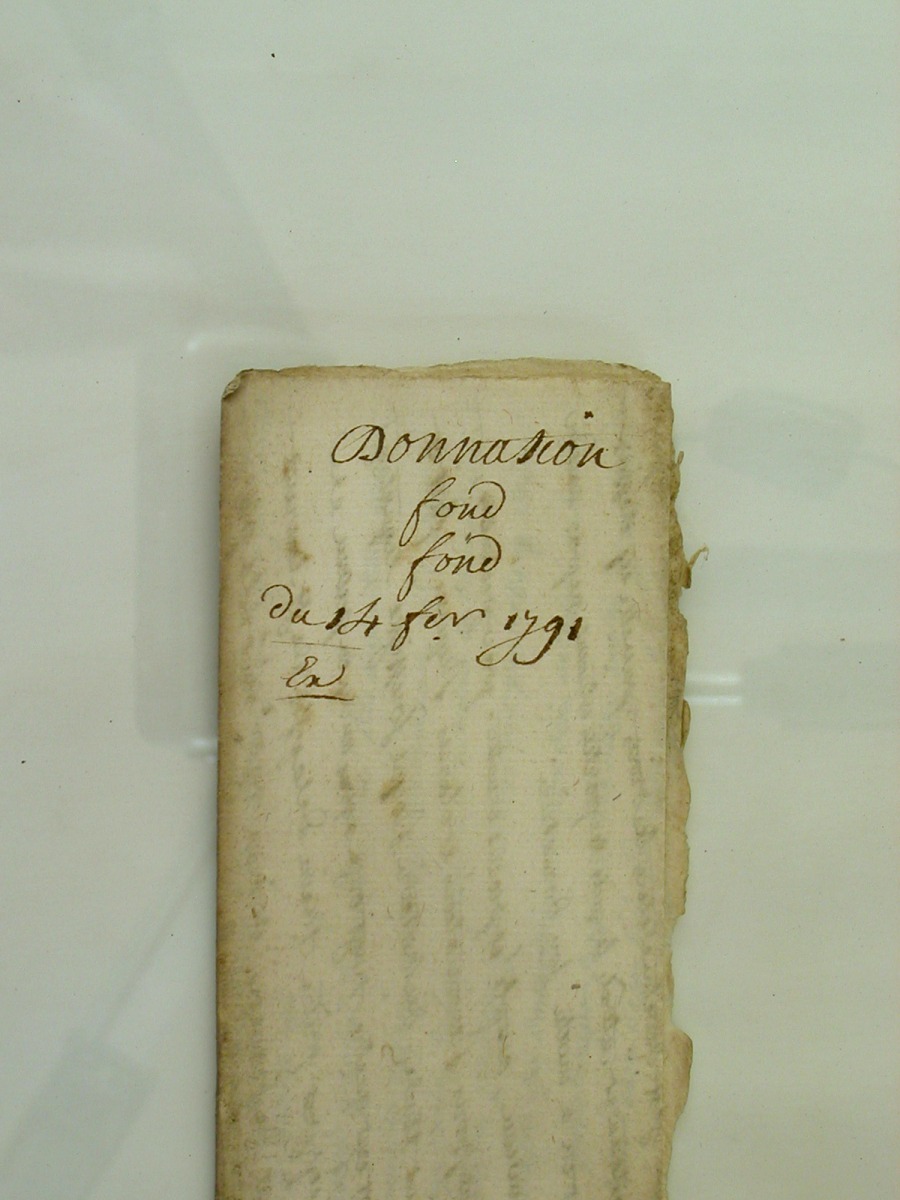 Donnation
fond
fond
Du 14 fer 1791
En